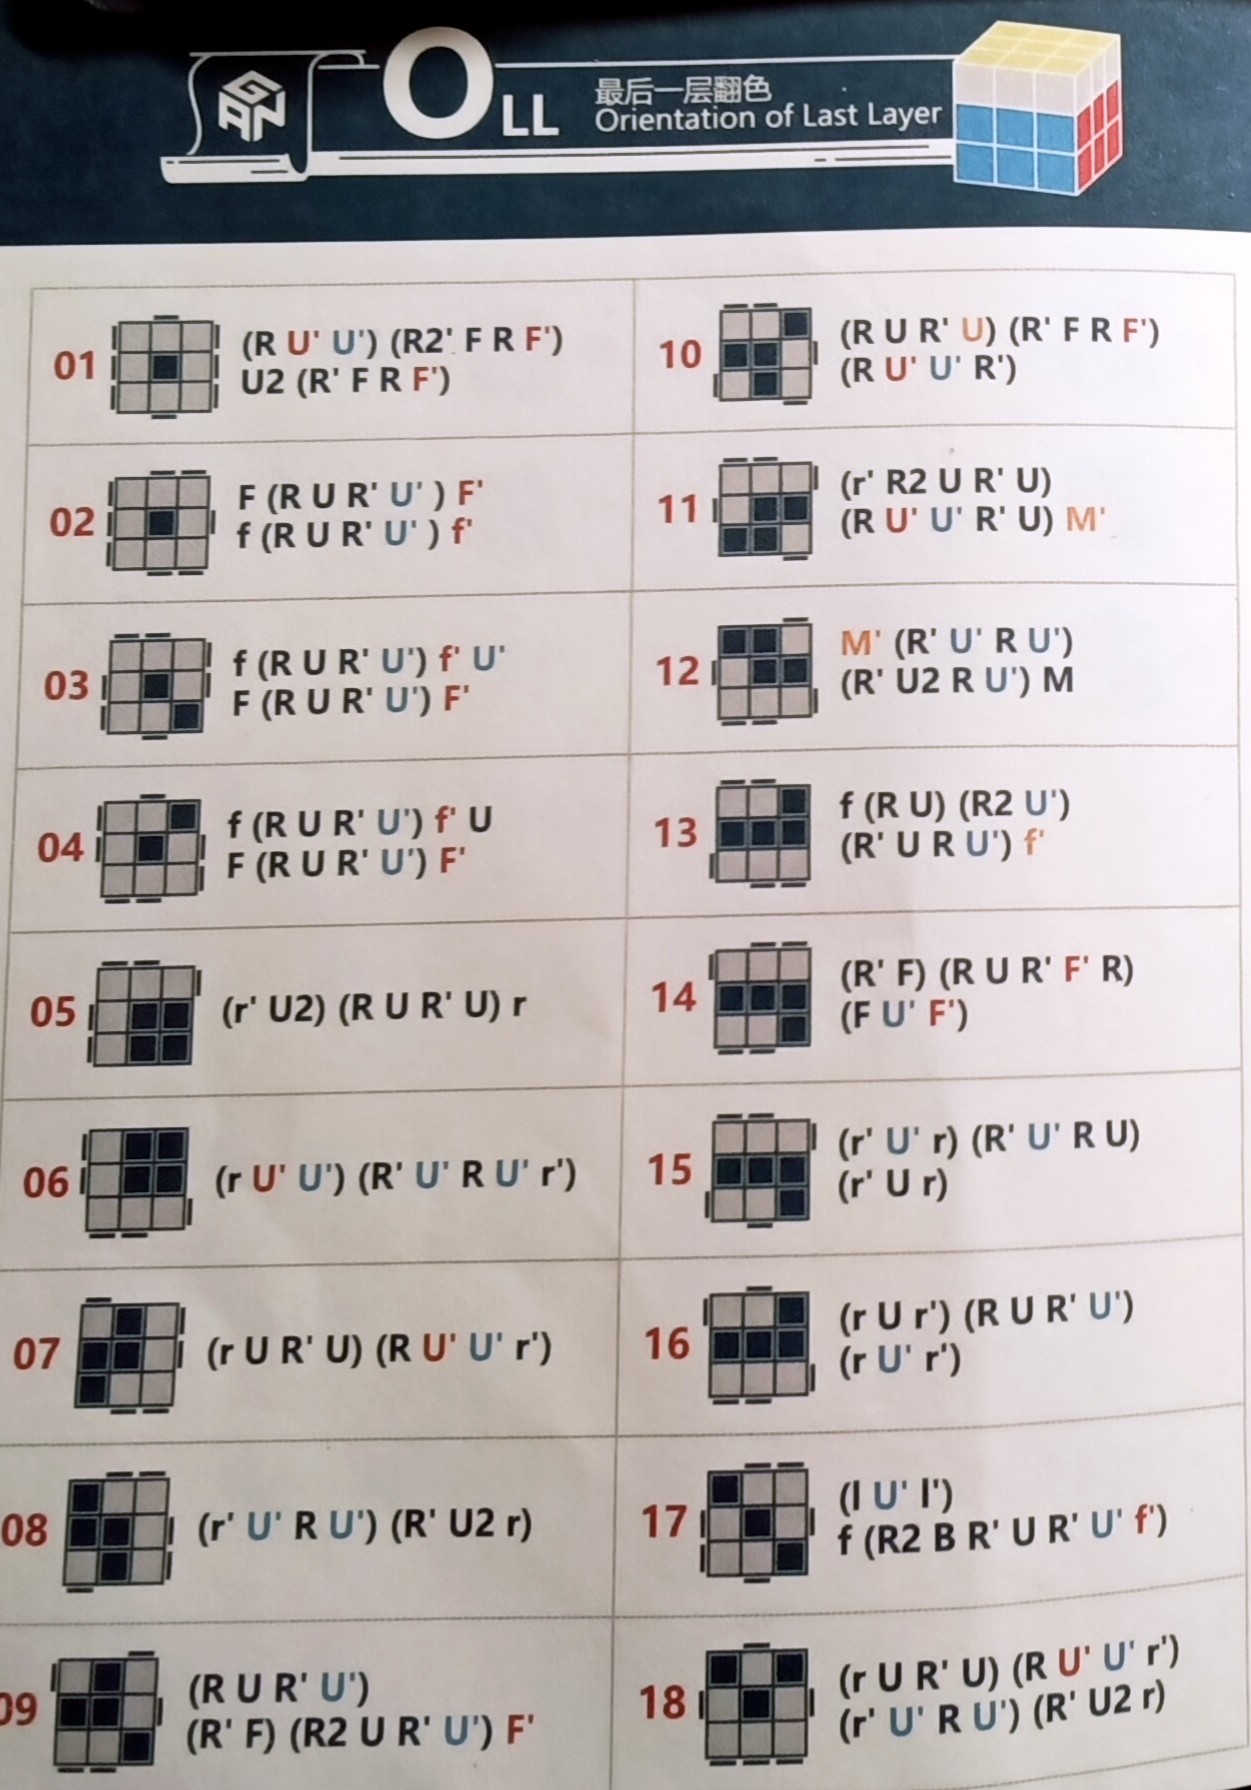 GAN
OLL
最后一层翻色
Orientation of Last Layer
01
(R U' U') (R2' F R F')
U2 (R' F R F')
02
F (R U R' U' ) F'
f (R U R' U' ) f'
03
f (R U R' U') f' U'
F (R U R' U') F'
04
f (R U R' U') f' U
F (R U R' U') F'
05
(r' U2) (R U R' U) r
06
(r U' U') (R' U' R U' r')
07
(r U R' U) (R U' U' r')
08
(r' U' R U') (R' U2 r)
09
(R U R' U')
(R' F) (R2 U R' U') F'
10
(R U R' U) (R' F R F')
(R U' U' R')
11
(r' R2 U R' U)
(R U' U' R' U) M'
12
M' (R' U' R U')
(R' U2 R U') M
13
f (R U) (R2 U')
(R' U R U') f'
14
(R' F) (R U R' F' R)
(F U' F')
15
(r' U' r) (R' U' R U)
(r' U r)
16
(r U r') (R U R' U')
(r U' r')
17
(l U' l')
f (R2 B R' U R' U' f')
18
(r U R' U) (R U' U' r')
(r' U' R U') (R' U2 r)